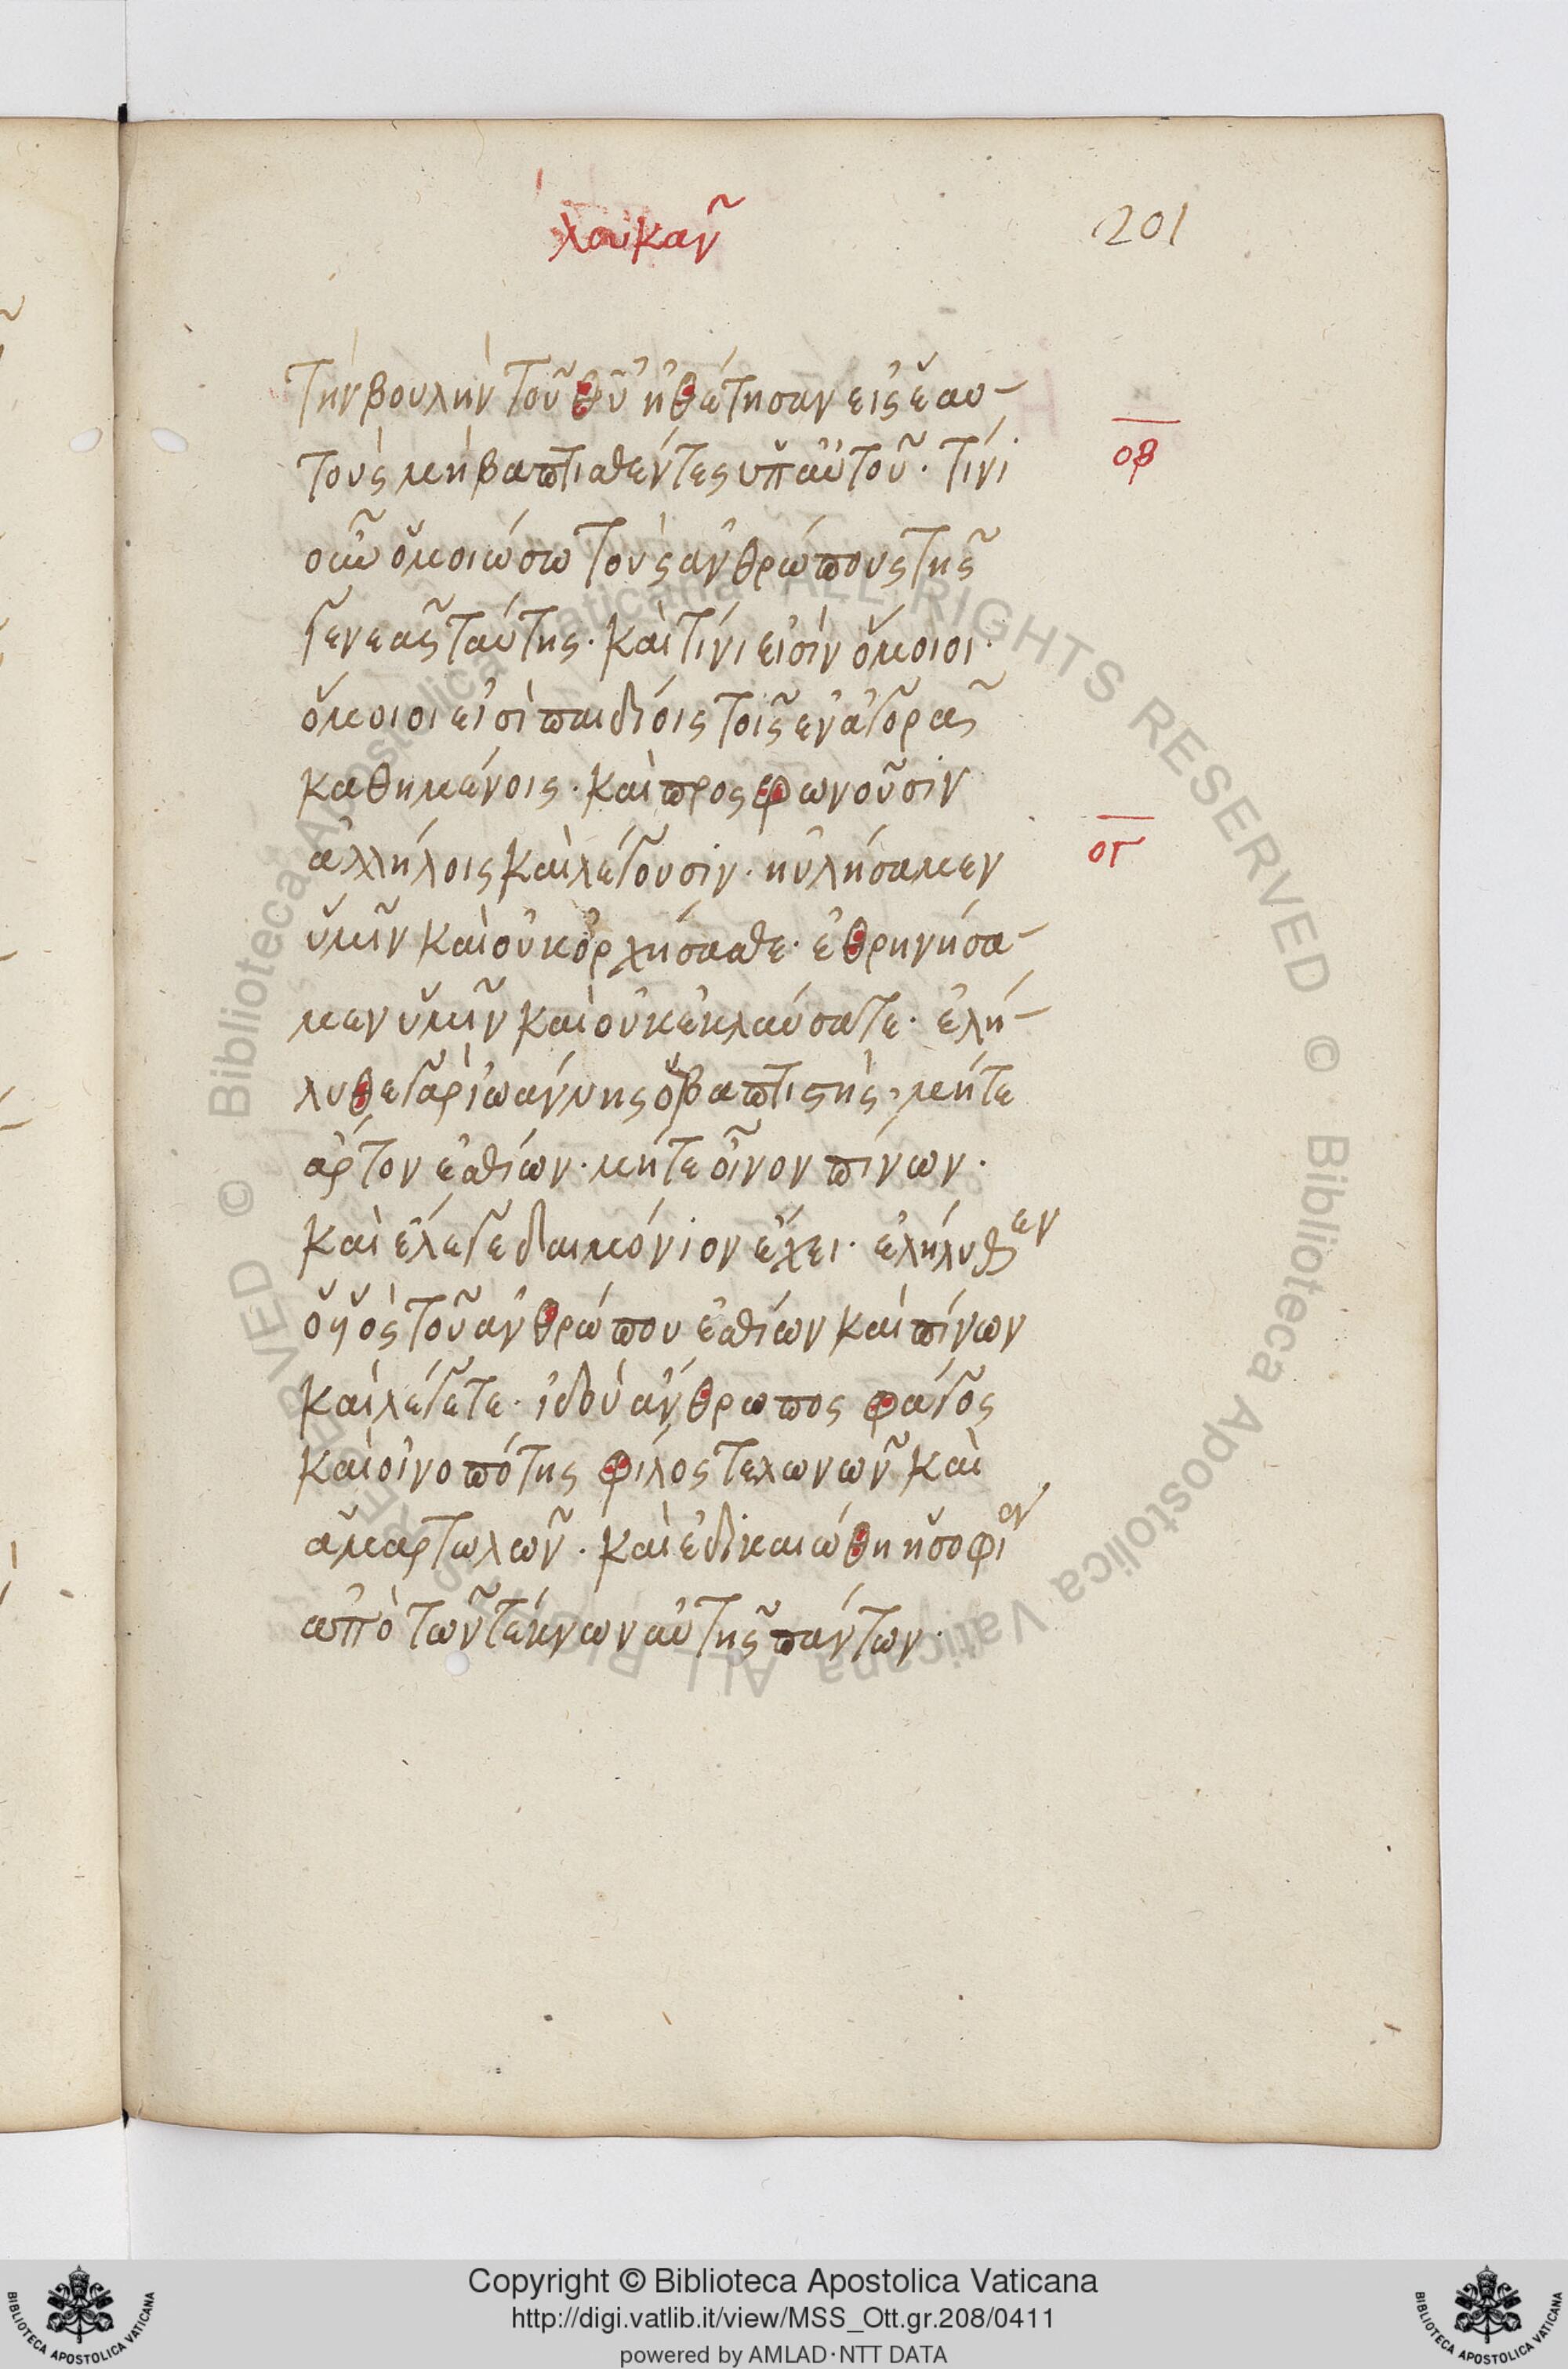 λουκαν
201
τὴν βουλὴν τοῦ θῦ ἠθέτησαν εἰς ἑαυ-
τοὺς μὴ βαπτισθέντες ὑπ' αὐτοῦ. τίνι
οβ
οὖν ὁμοιώσω τοὺς ἀνθρώπους τῆς
γενεᾶς ταύτης. καὶ τίνι εἰσὶν ὅμοιοι.
ὅμοιοι εἰσὶ παιδίοις τοῖς ἐν ἀγορᾶ
καθημένοις. καὶ προςφωνοῦσιν
ἀλλήλοις καὶ λέγουσιν. ηὐλήσαμεν
ογ
ὑμῖν καὶ οὐκ ὀρχήσασθε. ἐθρηνήσα-
μεν ὑμῖν καὶ οὐκ ἐκλαύσατε. ἐλή-
λυθε γὰρ ἰωάννης ὁ βαπτιστὴς, μήτε
ἄρτον ἐσθίων. μήτε οἶνον πίνων.
καὶ ἐλέγε δαιμόνιον ἔχει. ἐλήλυθεν
ὁ ὑὸς τοῦ ἀνθρώπου ἐσθίων καὶ πίνων
καὶ λέγετε. ἰδοὺ ἄνθρωπος φάγος
καὶ οἰνοπότης φίλος τελωνῶν καὶ
ἁμαρτωλῶν. καὶ ἐδικαιώθη ἡ σοφία
ἀπὸ τῶν τέκνων αὐτῆς πάντων.
Copyright © Biblioteca Apostolica Vaticana
http://digi.vatlib.it/view/MSS_Ott.gr.208/0411
powered by AMLAD·NTT DATA
BIBLIOTECA APOSTOLICA VATICANA
BIBLIOTECA APOSTOLICA VATICANA
© Biblioteca Apostolica Vaticana ALL RIGHTS RESERVED © Biblioteca Apostolica Vaticana ALL RIGHTS RESERVED